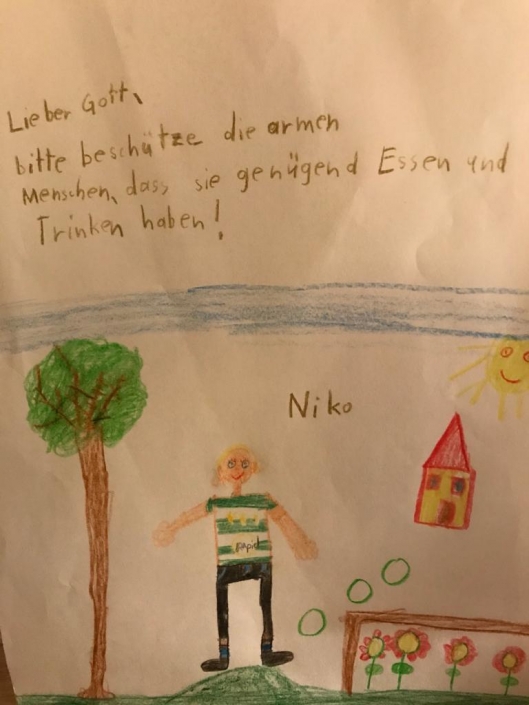 Lieber Gott,
bitte beschütze die armen
Menschen, dass sie genügend Essen und
Trinken haben!
Niko
rapid